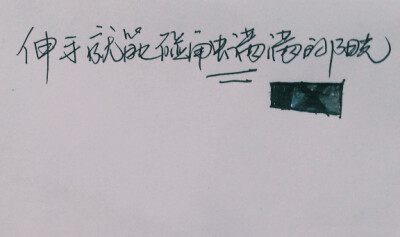 伸手就能碰触满满的阳光